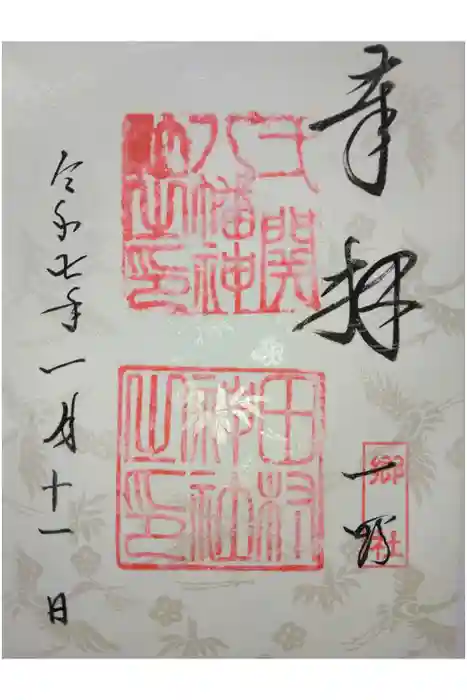 奉拝
郷社
関
八幡神
社之印
田村
神社
之印
令和七年一月十一日